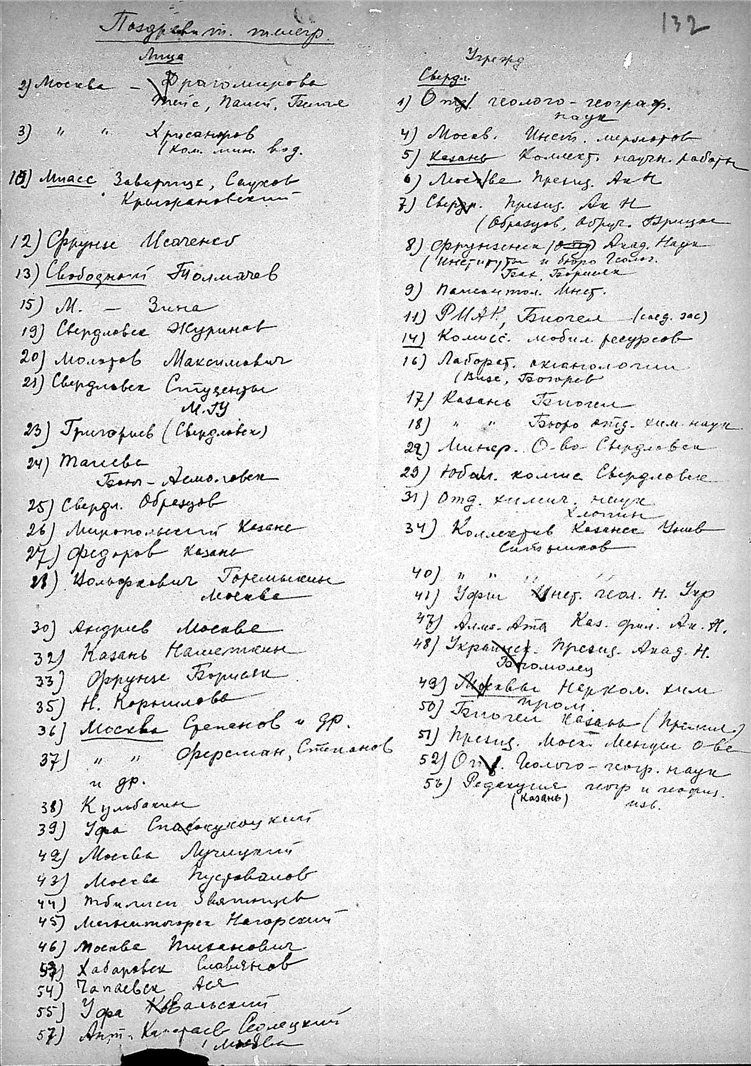 132
Поздравит. телегр.
Лица
2) Москва — Драгомирова
Тейс, Палей,
3) " " Хрисанфов
(Ком. мин. вод.
10) Миасс Заварицк,
12) Фрунзе Исаченко
13) Свободный Толмачев
15) М. — Зина
19) Свердловск Журинов
20) Молотов Максимович
21) Свердловск Студенты
МГУ
23) Григорьев (Свердловск)
24)
25) Свердл. Образцов
26) Миропольский Казань
27) Федоров Казань
28) Вольфкович Горемыкин
Москва
30) Андреев Москва
32) Казань Наметкин
33) Фрунзе Борисяк
35) Н. Корнилова
36) Москва Степанов и др.
37) " " Ферсман, Степанов
и др.
38) Кулбакин
39) Уфа Спасокукоцкий
42) Москва Лучицкий
43) Москва Пустовалов
44) Тбилиси Звягинцев
45) Магнитогорск Нагорский
46) Москва Тиханович
53) Хабаровск Славянов
54) Чапаевск Ася
55) Уфа
57) Москва
Учрежд
Свердл.
1) Отд. геолого-географ.
наук
4) Москв. Инст. мерзлотов
5) Казань Коллект. научн. работн
6) Москва Презид. Ак Н
7) Свердл. Презид. Ак Н
(Образцов, Обруч. Брицке
8) Фрунзенск (отд) Акад. Наук
(Институты и бюро Геолог.
Бах, Борисяк
9) Палеонтол. Инст.
11) РИАН, Биогел (след. зас)
14) Комисс. мобил. ресурсов
16) Лаборат. океанологии
(Визе, Богоров
17) Казань Биогел
18) " " Бюро отд. хим. наук
22) Минер. О-во Свердловск
29) Юбил. комис Свердловск
31) Отд. химич. наук
Хлопин
34) Коллектив Казанск Унив
Ситников
40) " "
41) Уфим Инст. геол. Н. Укр
47) Алма-Ата Каз. фил. Ак. Н.
48) Украинск. Презид. Акад. Н.
Богомолец
49) Москвы Нарком. хим
пром.
50) Биогел Казань
51) Презид. Моск О-ва
52) Отд. Геолого-геогр. наук
56) Редакция геогр и геофиз.
(Казань) изв.